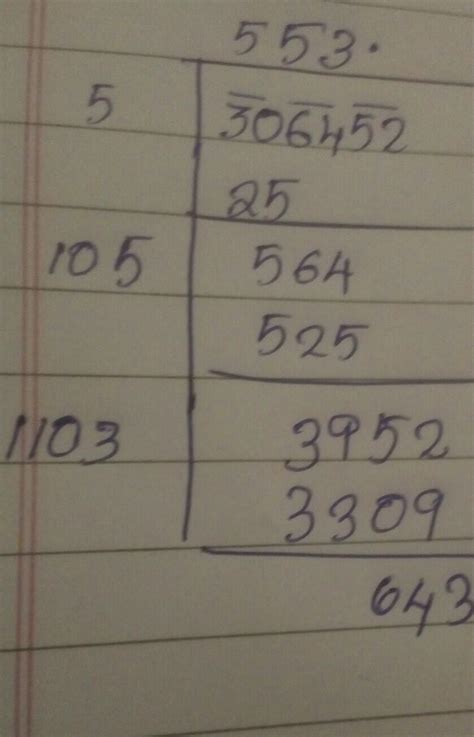 553.
5 306452
25
105 564
525
1103 3952
3309
643